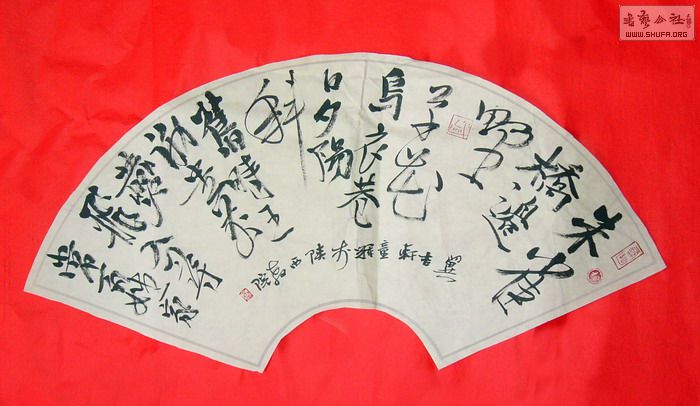 朱雀
橋邊
野
草花
烏衣巷
口夕陽
斜
舊時王
謝堂前
燕
飛入尋
常百姓家
軒童 於陝西 院
書藝公社
WWW.SHUFA.ORG